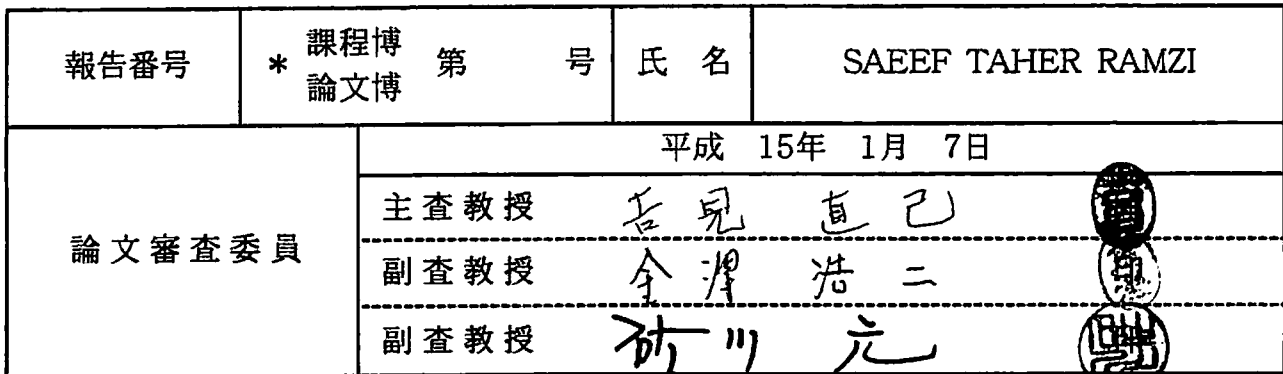 報告番号
* 課程博
論文博
第 号
氏 名
SAEEF TAHER RAMZI
論文審査委員
平成 15年 1月 7日
主査教授 吉見 直己
副査教授 金澤 浩二
副査教授 砂川 元